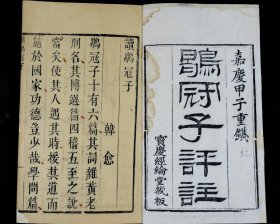 嘉慶甲子重鐫
鶡冠子評註
寶慶經綸堂藏板
讀鶡冠子
韓愈
鶡冠子十有六篇其詞雜黃老
刑名其博選篇四稽五至之說
當矣使其人遇其時援其道而
施於國家功德豈少哉學問篇